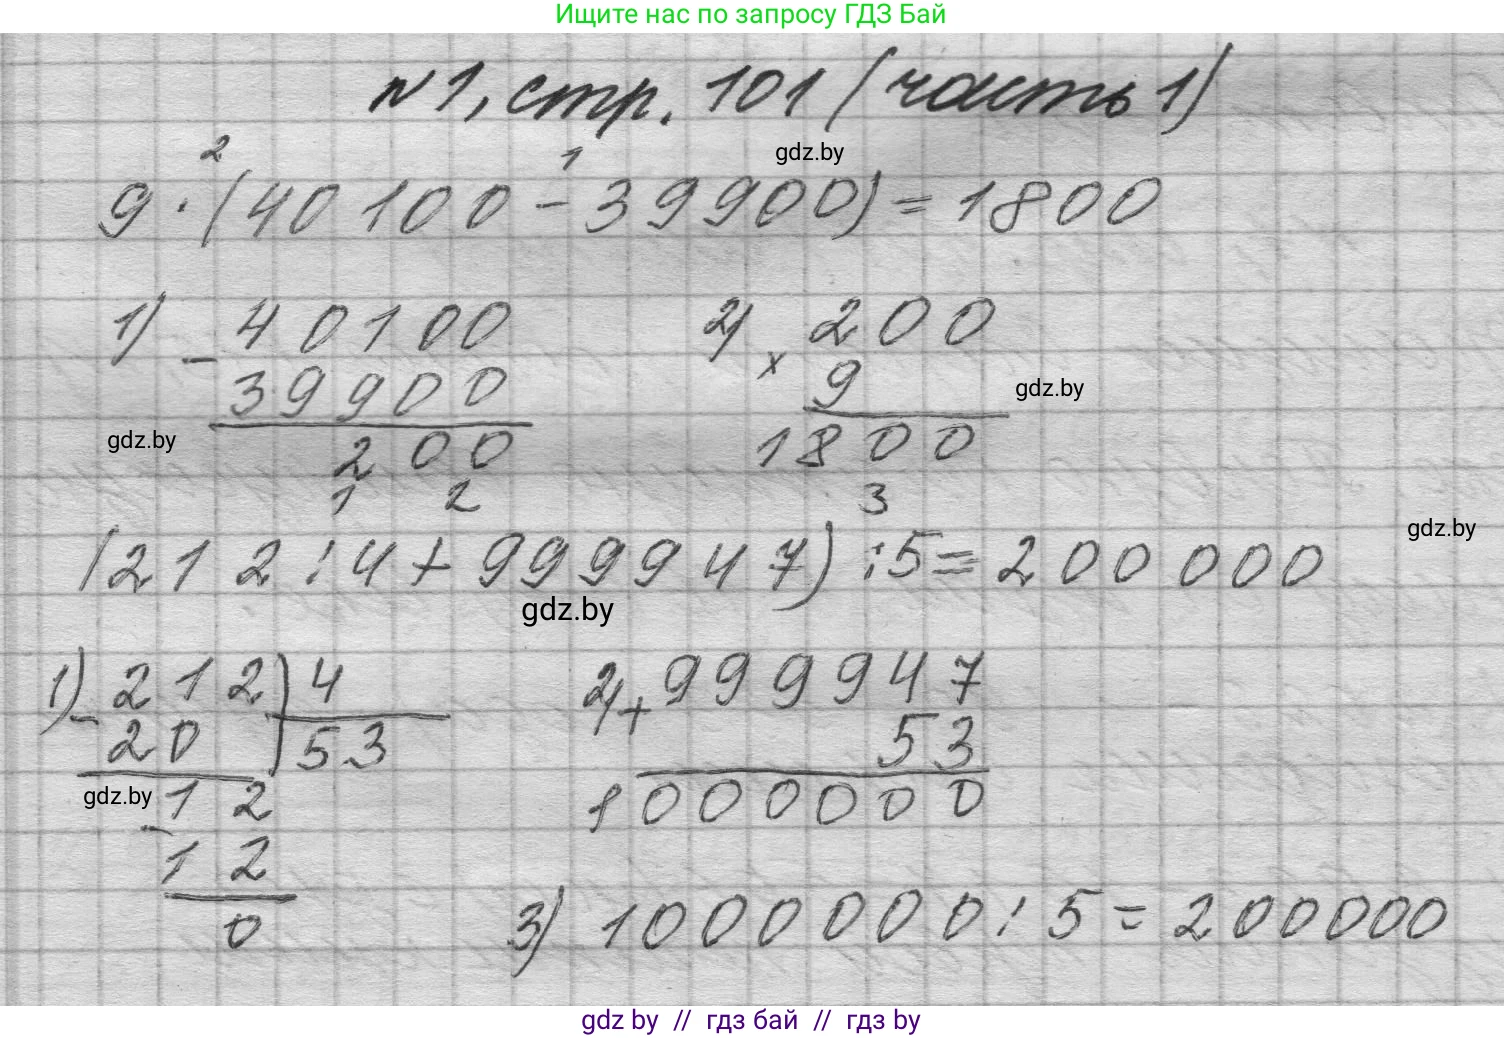 Ищите нас по запросу ГДЗ Бай
№1, стр. 101 (часть 1)
2 1
gdz.by
9 · (40100 - 39900) = 1800
1) - 40100
39900
200
2) x 200
9
1800
gdz.by
gdz.by
1 2 3
(212 : 4 + 999947) : 5 = 200000
gdz.by
gdz.by
1) - 212 | 4
20 | 53
- 12
12
0
gdz.by
2) + 999947
53
1000000
3) 1000000 : 5 = 200000
gdz by // гдз бай // гдз by